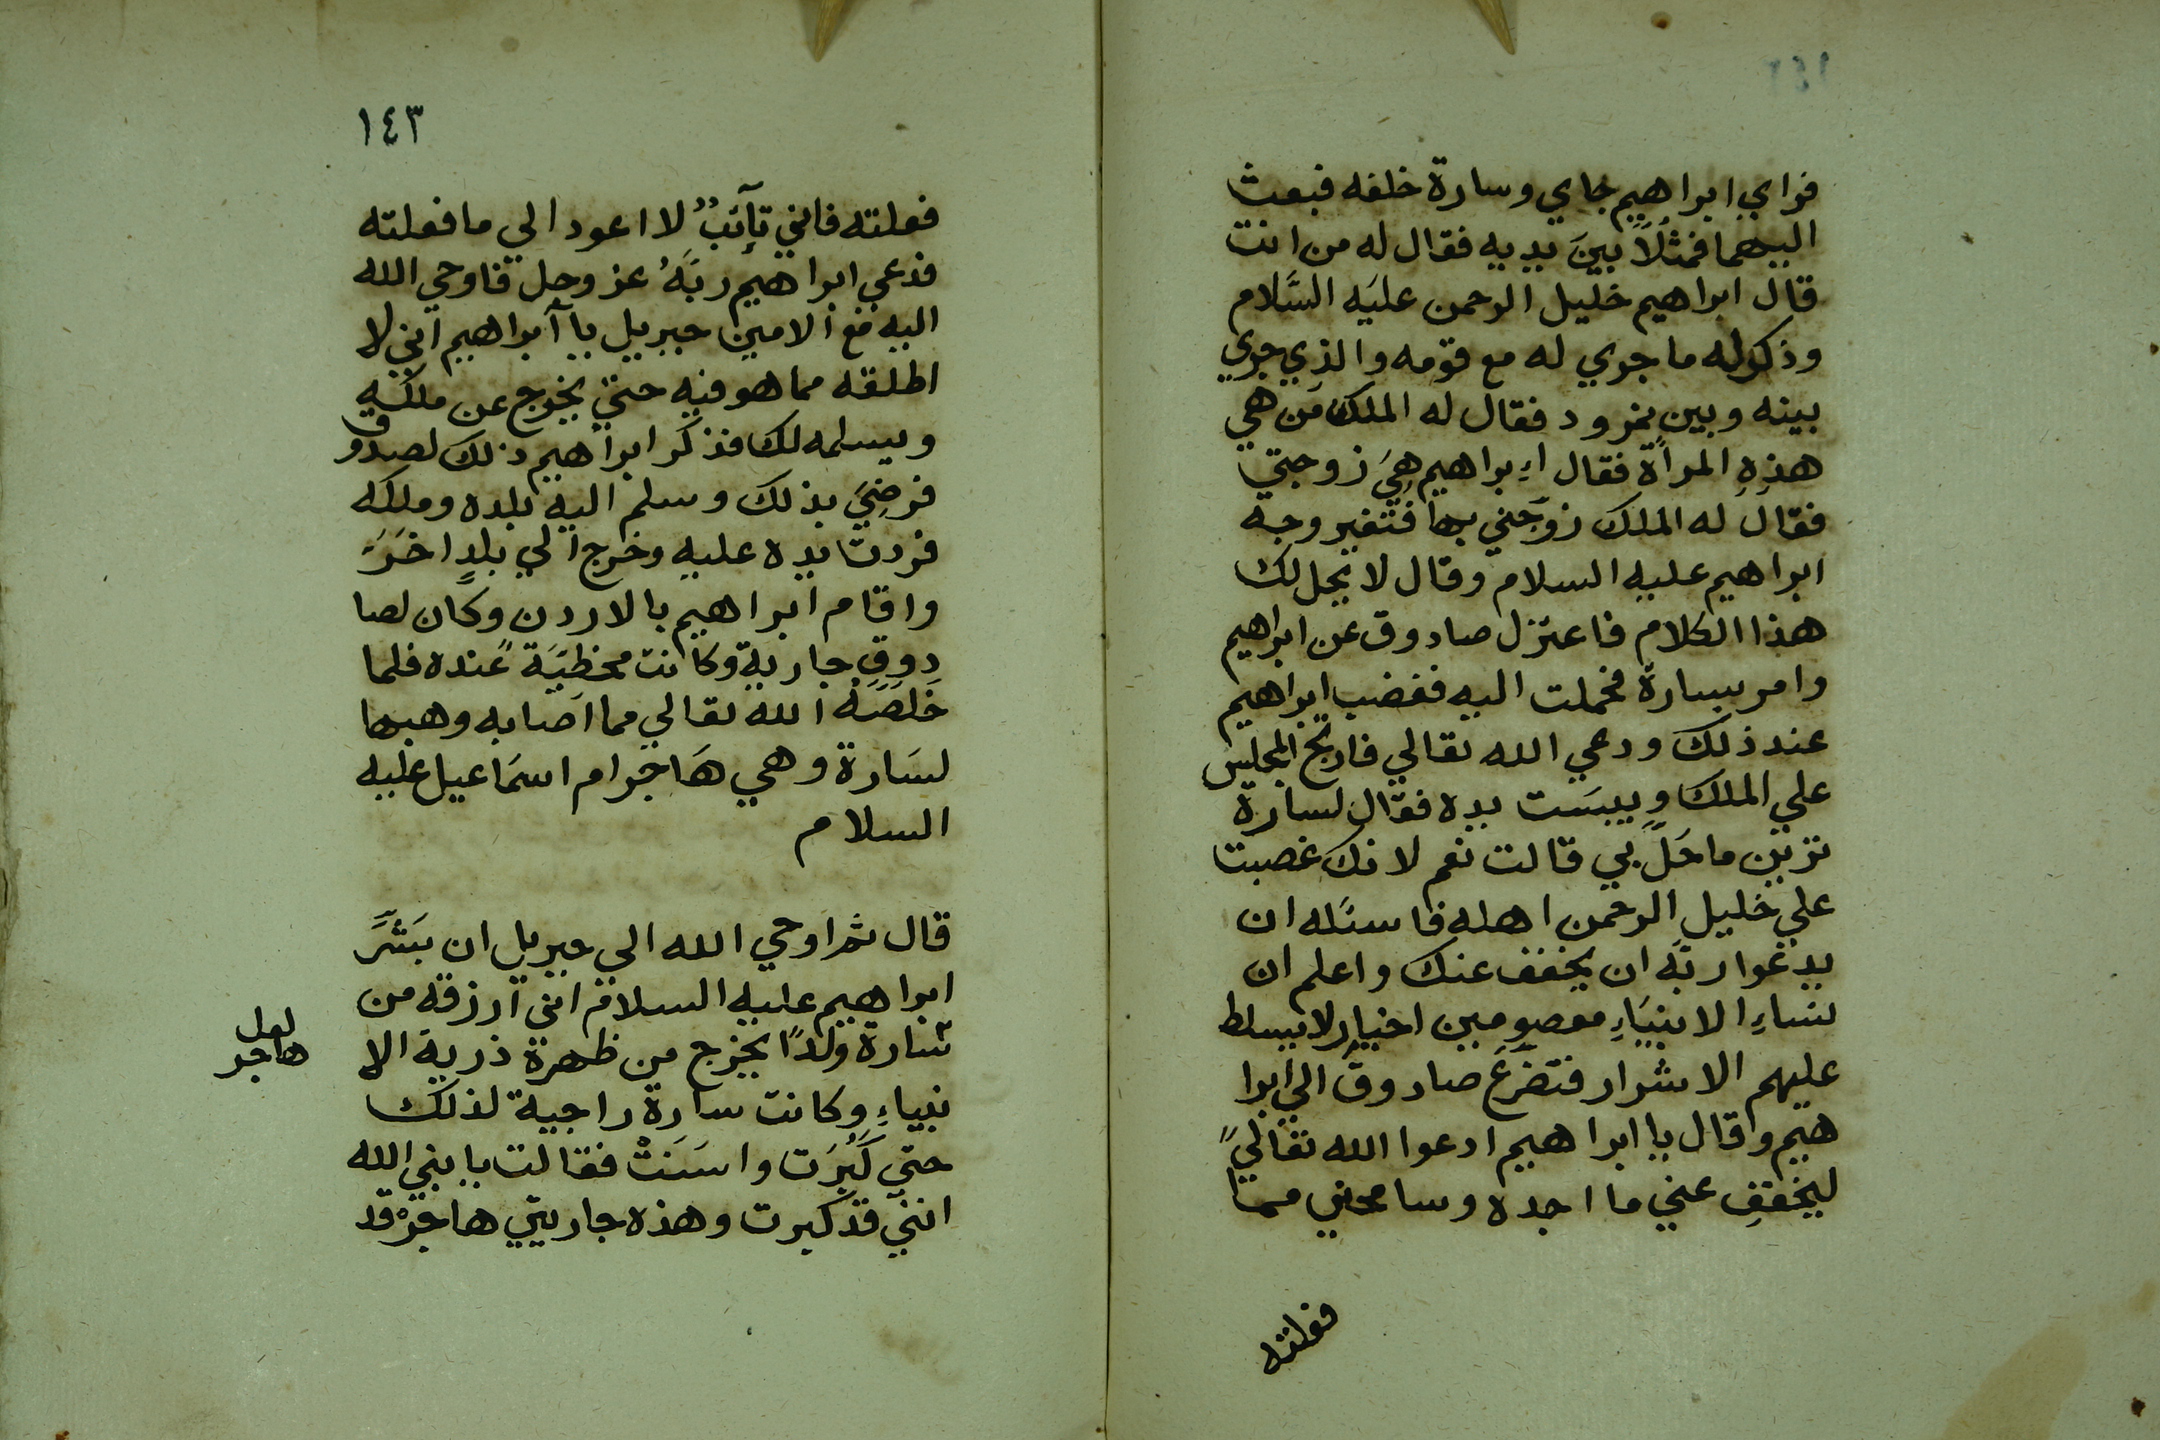 فراي ابراهيم جاي وسارة خلفه فبعث
اليهما فمثلاً بينَ يديه فقال له من انت
قال ابراهيم خليل الرحمن عليَه السَّلام
وذكر له ما جري له مع قومه والذي جري
بينه وبين نمرود فقال له الملك مَن هي
هذهِ المرأة فقال اِبراهيم هِيَ زوجتي
فقال له الملك زوّجني بها فتغير وجه
ابراهيم عليه السلام وقال لا يحل لك
هذا الكلام فاعتزل صادوق عن ابراهيم
وامر بسارة فحملت اليه فغضب ابراهيم
عند ذلك ودعي الله تعالي فارتج المجلس
علي الملك ويبسَت يده فقال لسارة
ترين ما حَلّ بي قالت نعم لانك غصبت
علي خليل الرحمن اهله فاسئله ان
يدعوا ربّه ان يخفف عنك واعلم ان
نساءِ الانبيَاءِ معصومين اخيار لا يسلط
عليهم الاشرار فتضرّعَ صادوق الي ابرا
هيم وقال يا ابراهيم ادعوا الله تعالي
ليخفف عني ما اجده وسامحني مما
فعلته
١٤٣
فعلته فاني تآئبٌ لا اعود الي ما فعلته
فدعي ابراهيم ربَّهُ عز وجل فاوحي الله
اليه مع الامين جبريل يا ابراهيم اني لا
اطلقه مما هو فيه حتي يخرج عن ملكه
ويسلمه لك فذكر ابراهيم ذلك لصدوق
فرضِيَ بذلك وسلم اليه بلده وملكه
فردت يده عليه وخرج الي بلدٍ اخَرَ
واقام ابراهيم بالاردن وكان لصا
دوق جارية وكانت محظيَة عنده فلما
خَلصَهُ الله تعالي مما اصابه وهبها
لسَارة وهي هَاجرام اسمَاعيل عليه
السلام
قال ثم اوحي الله الي جبريل ان بَشّرَ
ابراهيم عليه السلام اني ارزقه من
سارة ولدًا يخرج من ظهرة ذرية الا
نبياءِ وكانت سارة راجية لذلك
حتي كَبُرَت واسَنَتْ فقالت يا نبي الله
انني قد كبرت وهذه جاريتي هاجرْ قد
لعل
هاجر